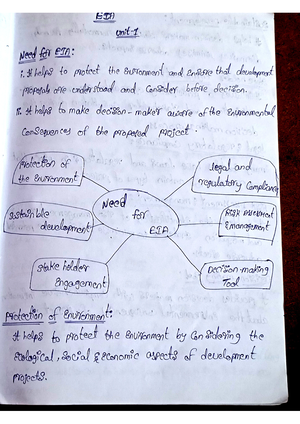 EIA
Unit-1
Need for EIA:
i. It helps to protect the Environment and Ensure that development
proposals are understood and Consider before decision.
ii. It helps to make decision-maker aware of the Environmental
Consequences of the proposed project.
Protection of
the Environment
legal and
regulatory Compliance
Sustainible
development
Need
for
EIA
Risk Assessment
& management
Stake holder
Engagement
Decision-making
Tool
Protection of Environment:
It helps to protect the Environment by Considering the
Ecological, Social & Economic aspects of development
projects.